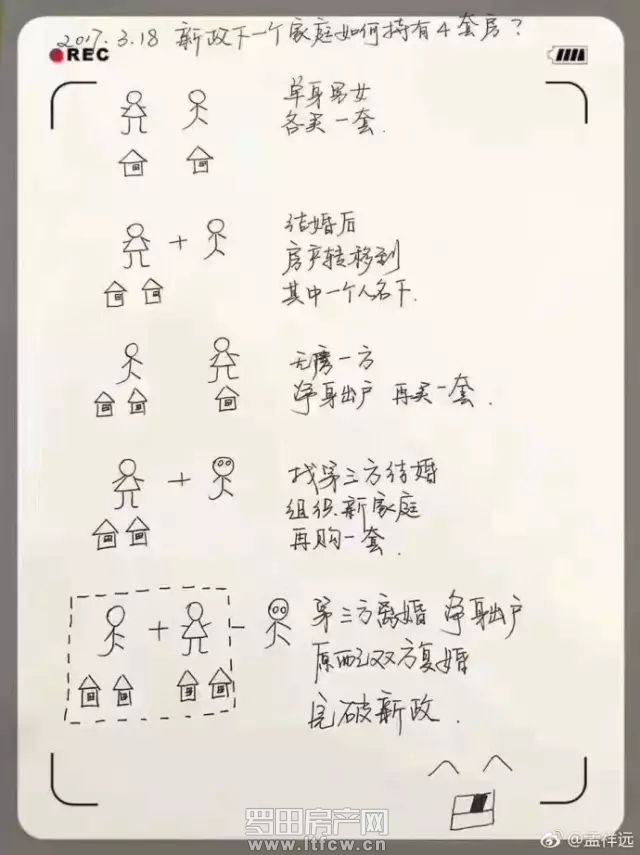 2017.3.18 新政下一个家庭如何持有4套房?
REC
单身男女
各买一套.
结婚后
房产转移到
其中一个人名下.
无房一方
净身出户 再买一套.
找第三方结婚
组织新家庭
再购一套.
第三方离婚 净身出户
原配双方复婚
完破新政.
罗田房产网
www.ltfcw.cn
@孟祥远